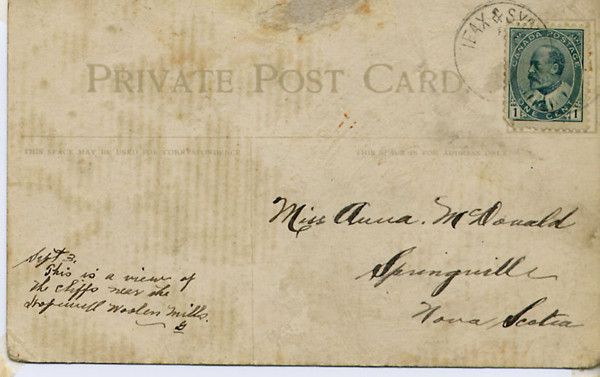 IFAX & SYD
CANADA POSTAGE
1 ONE CENT 1
PRIVATE POST CARD.
THIS SPACE MAY BE USED FOR CORRESPONDENCE
THIS SPACE IS FOR ADDRESS ONLY
Miss Anna. McDonald
Springville
Nova Scotia
Sept 3.
This is a view of
the cliffs near the
Hopewell Woolen Mills.